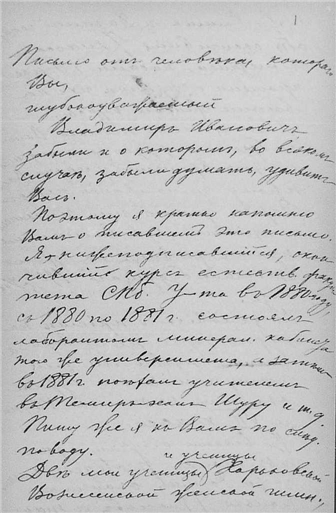 1
Письмо отъ человѣка, котораго
Вы,
глубокоуважаемый
Владимиръ Ивановичъ
забыли и о которомъ, во всякомъ
случаѣ, забыли думать, удивитъ
Васъ.
Поэтому я кратко напомню
Вамъ о писавшемъ это письмо.
Я, нижеподписавшійся, окон
чившій курсъ естеств. факуль
тета СПб. У-та въ 1880 году,
съ 1880 по 1881 г. состоялъ
лаборантомъ минерал. кабинета
того же университета, а затѣмъ
въ 1881 г. поѣхалъ учителемъ
въ Темиръ-Ханъ Шуру и т.д.
Пишу же я къ Вамъ по слѣд.
поводу.
и ученицы
Двѣ мои ученицы Харьковской
Вознесенской женской гимн.,